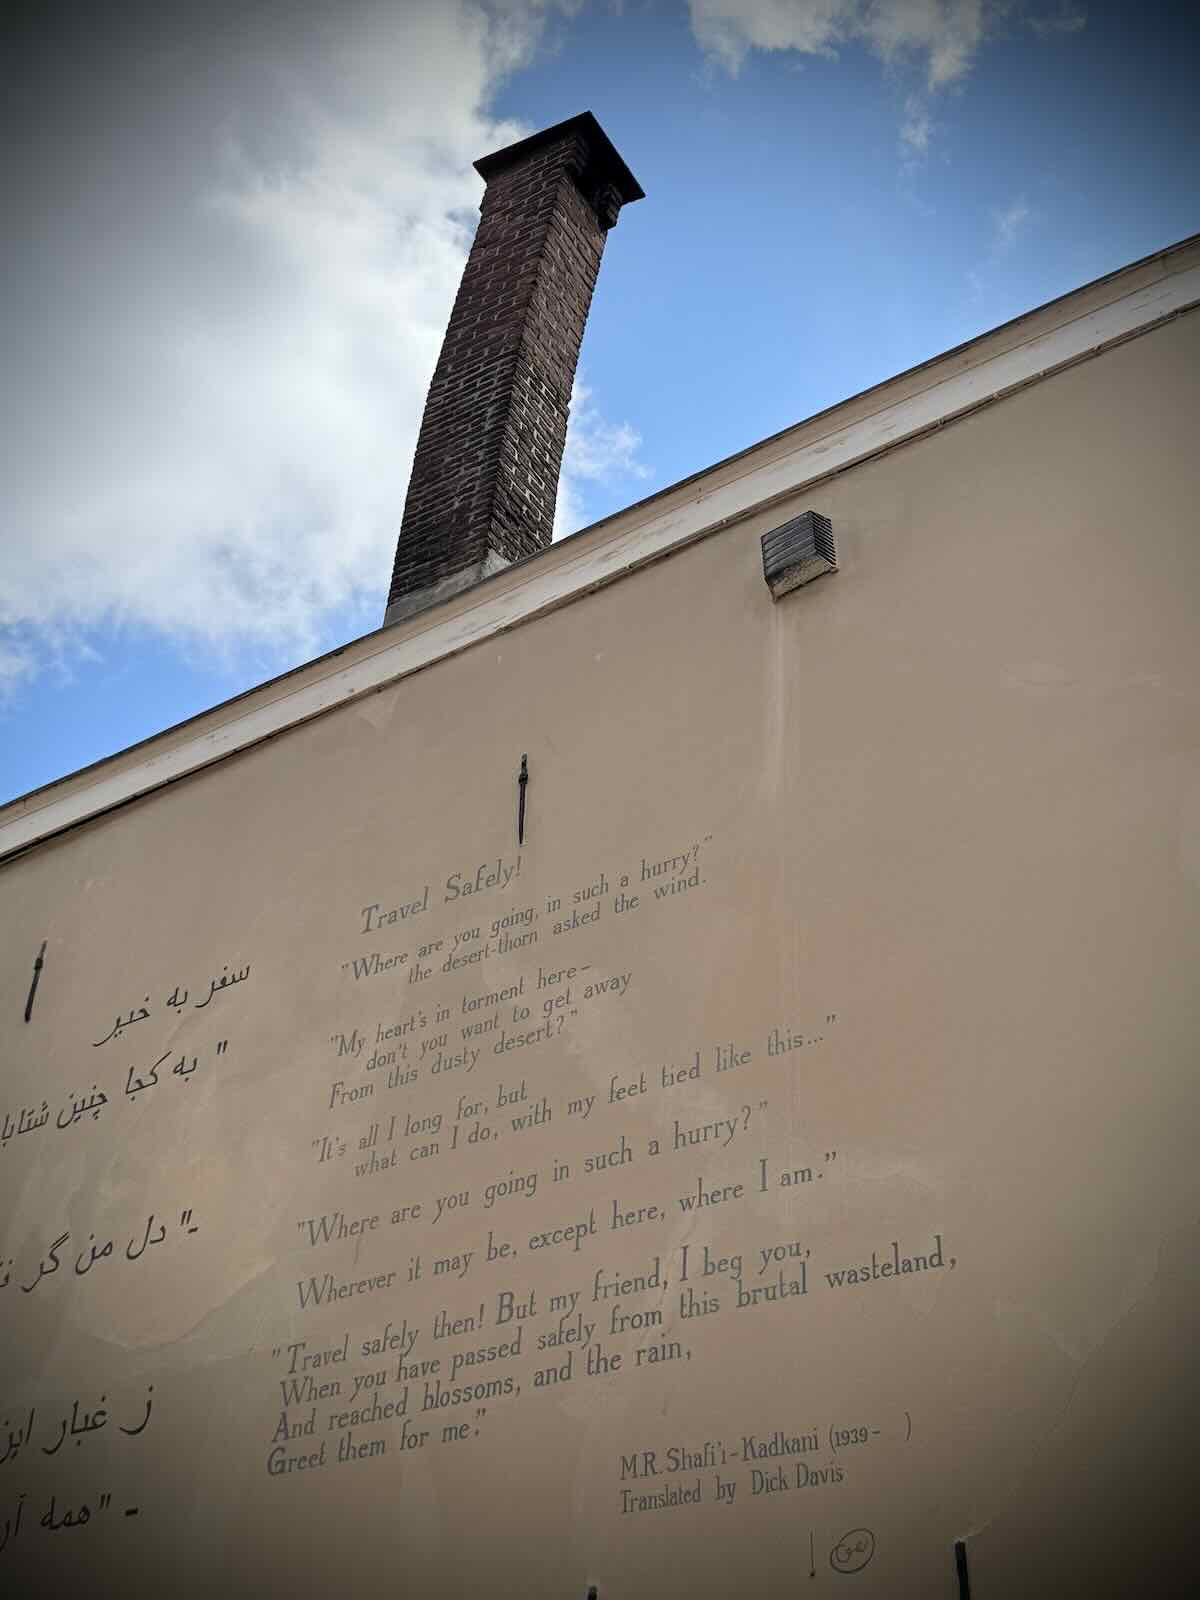 سفر به خیر
" به کجا چنین
-" دل من گر
ز غبار
- "همه
Travel Safely!
"Where are you going, in such a hurry?"
the desert-thorn asked the wind.
"My heart's in torment here–
don't you want to get away
From this dusty desert?"
"It's all I long for, but
what can I do, with my feet tied like this..."
"Where are you going in such a hurry?"
Wherever it may be, except here, where I am."
"Travel safely then! But my friend, I beg you,
When you have passed safely from this brutal wasteland,
And reached blossoms, and the rain,
Greet them for me."
M.R. Shafi'i-Kadkani (1939- )
Translated by Dick Davis